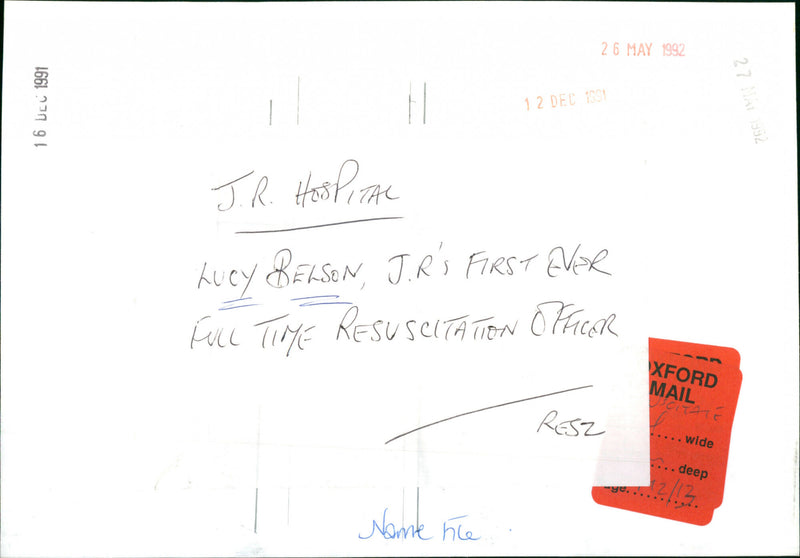 26 MAY 1992
16 DEC 1991
12 DEC 1991
27 MAY 1992
J.R. HOSPITAL
LUCY BELSON, J.R's FIRST EVER
FULL TIME RESUSCITATION OFFICER
RESZ
OXFORD
MAIL
wide
deep
Name File